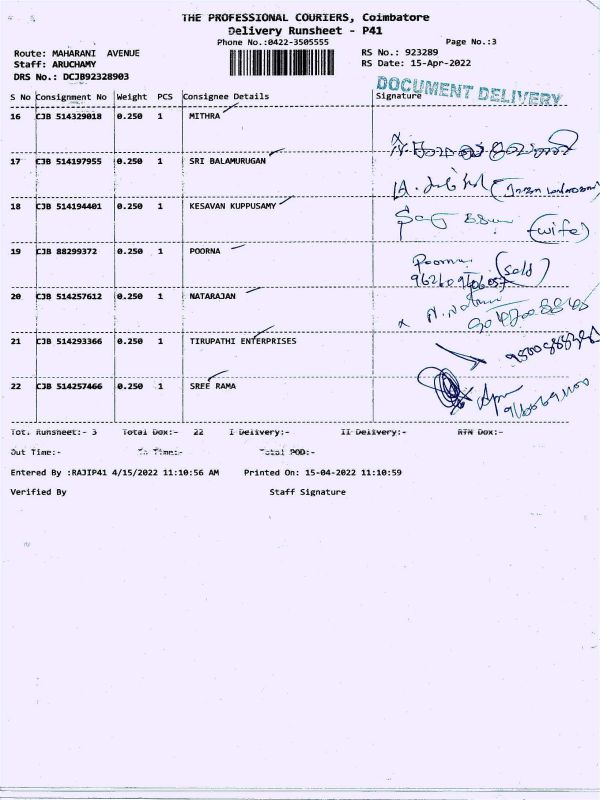 THE PROFESSIONAL COURIERS, Coimbatore
Delivery Runsheet - P41
Phone No.:0422-3505555
Page No.:3
Route: MAHARANI AVENUE
RS No.: 923289
Staff: ARUCHAMY
RS Date: 15-Apr-2022
DRS No.: DCJB92328903
DOCUMENT DELIVERY
S No Consignment No Weight PCS Consignee Details Signature
16 CJB 514329018 0.250 1 MITHRA
17 CJB 514197955 0.250 1 SRI BALAMURUGAN
18 CJB 514194401 0.250 1 KESAVAN KUPPUSAMY
(wife)
19 CJB 88299372 0.250 1 POORNA
Poorna
20 CJB 514257612 0.250 1 NATARAJAN
21 CJB 514293366 0.250 1 TIRUPATHI ENTERPRISES
22 CJB 514257466 0.250 1 SREE RAMA
Tot. Runsheet:- 3 Total Dox:- 22 I Delivery:- II Delivery:- RTN Dox:-
Out Time:- In Time:- Total POD:-
Entered By :RAJIP41 4/15/2022 11:10:56 AM Printed On: 15-04-2022 11:10:59
Verified By Staff Signature